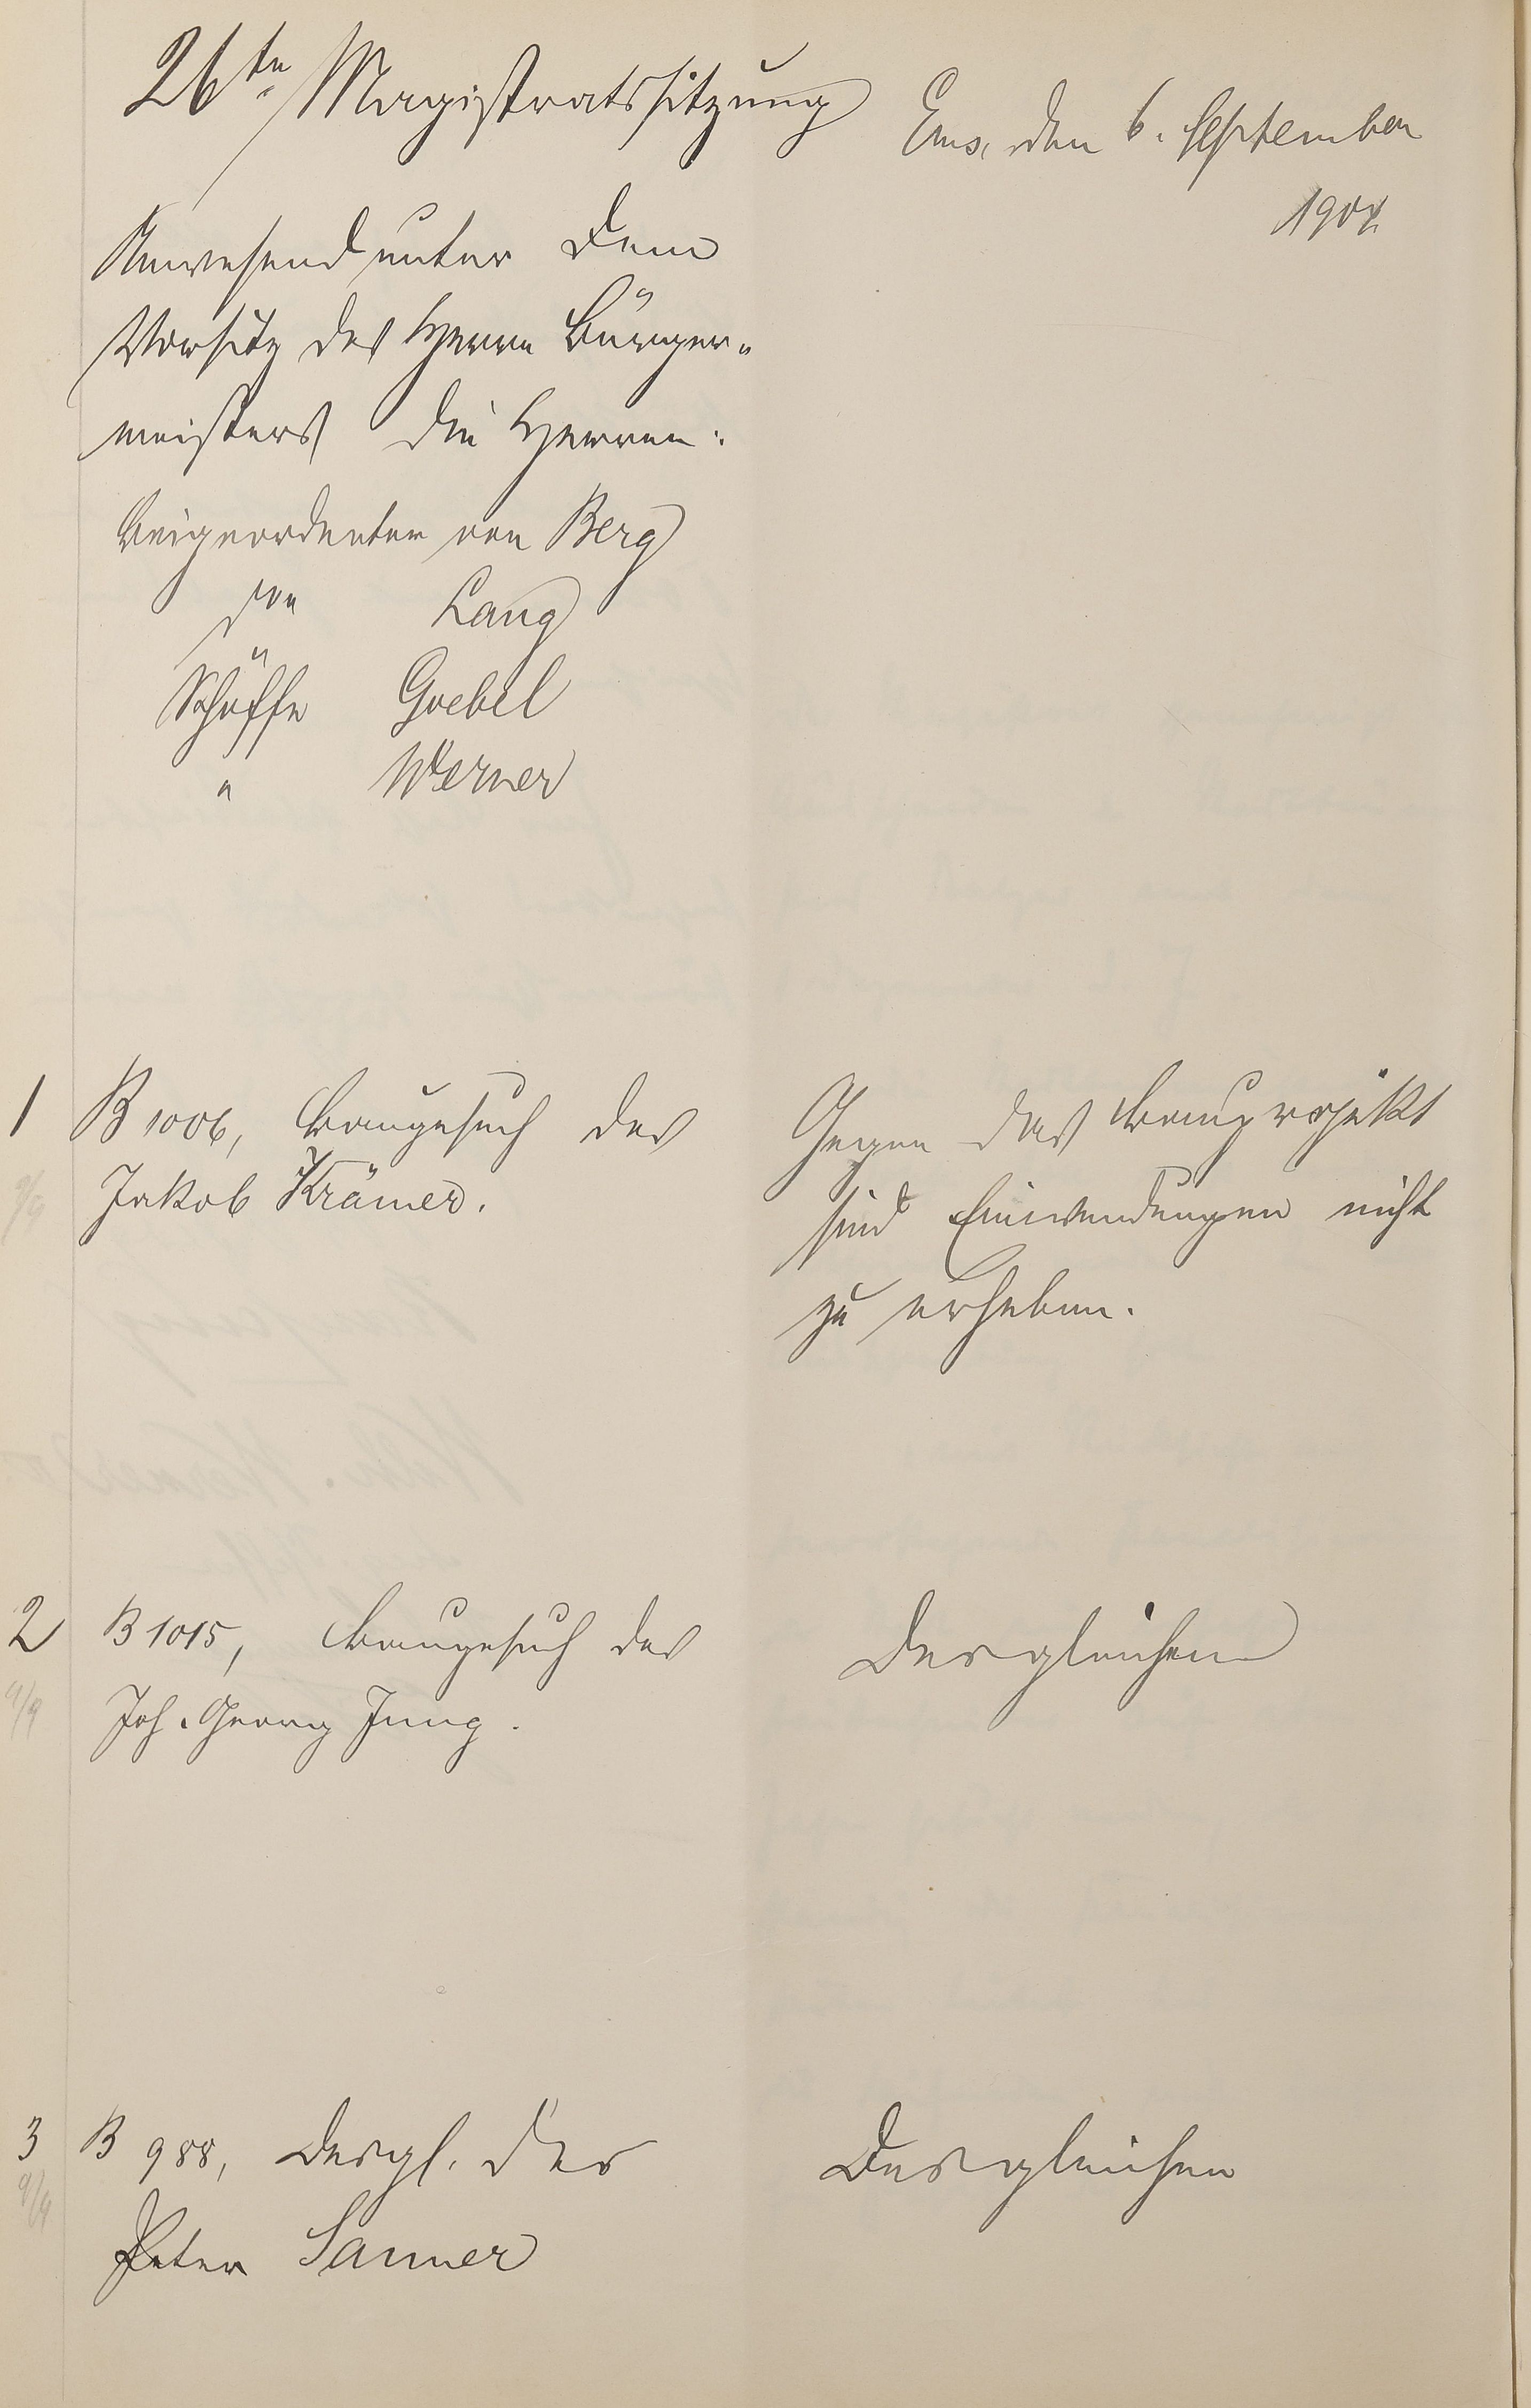 26te Magistratssitzung
Ems, den 6. September
1904.
Anwesend unter dem
Vorsitz des Herrn Bürger-
meisters die Herren:
Beigeordneter von Berg
Lang
Schöffe Goebel
" Werner
1 B 1006, Baugesuch des
9/9 Jakob Krämer.
Gegen das Bauprojekt
sind Einwendungen nicht
zu erheben.
2 B 1015, Baugesuch des
9/9 Joh. Georg Jung.
Desgleichen
3 B 988, Desgl. des
9/9 Peter Sanner
Desgleichen